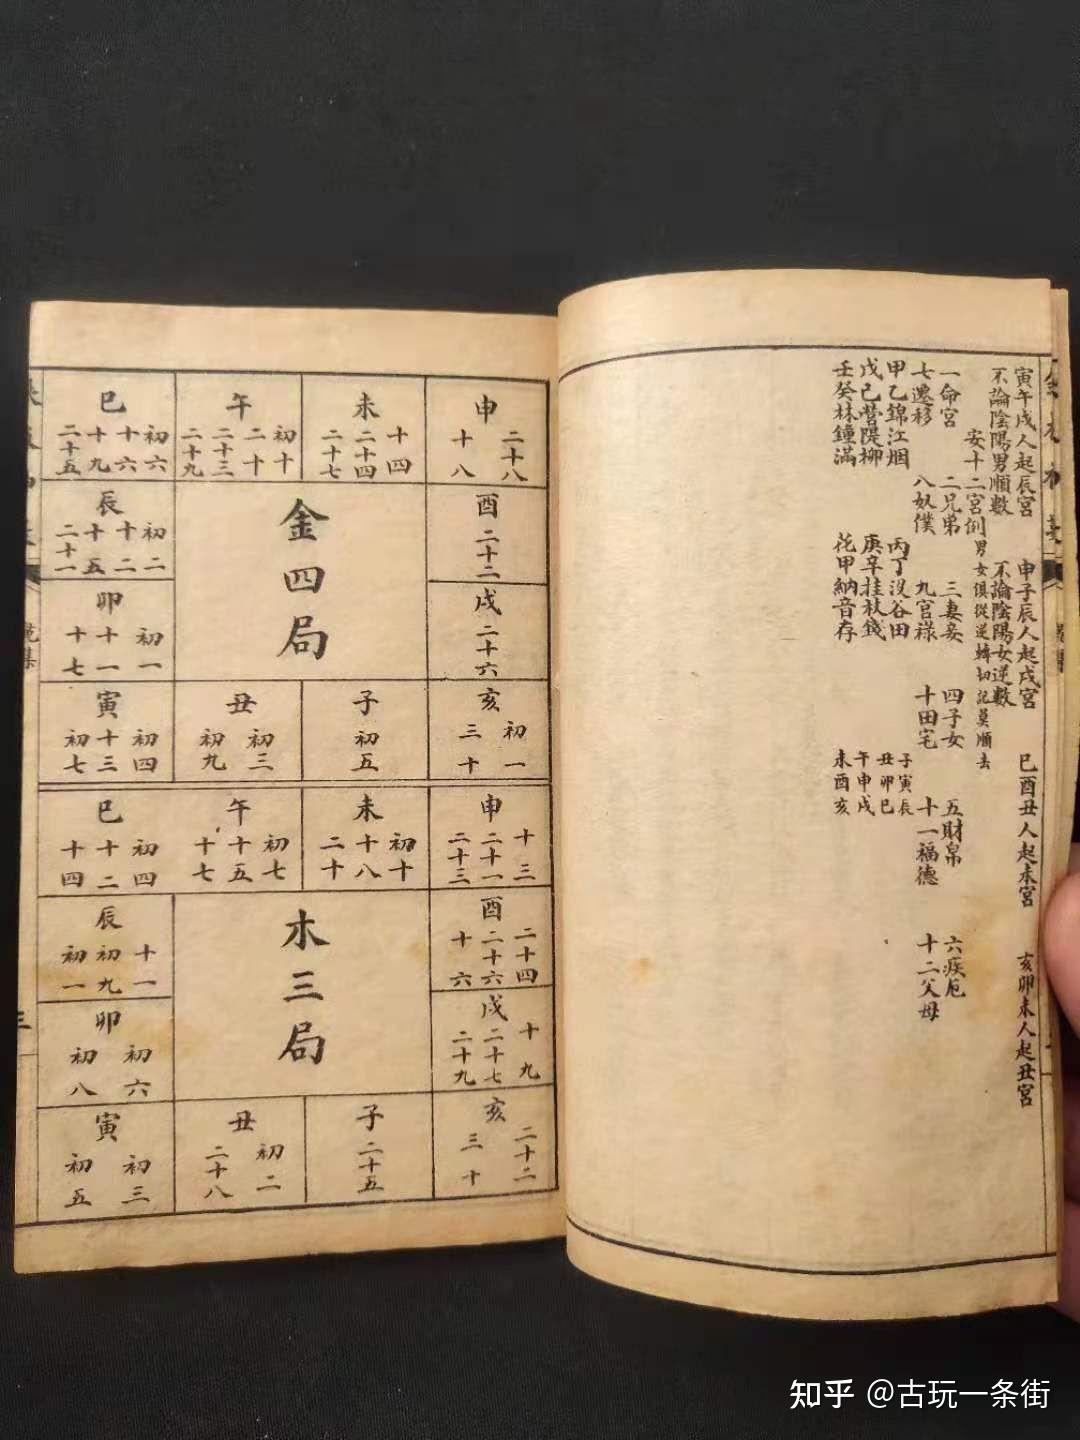 寅午戌人起辰宮 申子辰人起戌宮 巳酉丑人起未宮 亥卯未人起丑宮
不論陰陽男順數 不論陰陽女逆數
安十二宮例 男女俱從逆轉切記莫順去
一命宮 二兄弟 三妻妾 四子女 五財帛 六疾厄
七遷移 八奴僕 九宮祿 十田宅 十一福德 十二父母
甲乙錦江烟 丙丁沒谷田 子寅辰
戊己營隄柳 庚辛挂杖錢 丑卯巳
壬癸林鐘滿 花甲納音存 午申戌
未酉亥
金四局
申 二十八 十八
未 十四 二十四 二十七
午 初十 二十 二十三 二十九
巳 初六 十六 十九 二十五
酉 二十二
辰 初二 十二 十五 二十一
戌 二十六
卯 初一 十一 十七
亥 初一 三十
子 初五
丑 初三 初九
寅 初四 十三 初七
木三局
申 十三 二十一 二十三
未 初十 十八 二十
午 初七 十五 十七
巳 初四 十二 十四
酉 二十四 二十六 十六
辰 十一 初九 初一
戌 十九 二十七 二十九
卯 初六 初八
亥 二十二 三十
子 二十五
丑 初二 二十八
寅 初三 初五
三
知乎 @古玩一条街